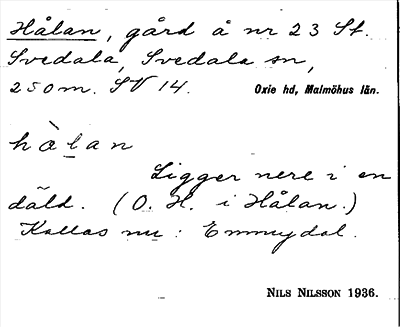 Hålan, gård å nr 23 St.
Svedala, Svedala sn,
250m. SV 14. Oxie hd, Malmöhus län.
hὰlan
Ligger nere i en
däld. (O. H. i Hålan.)
Kallas nu: Emmydal.
NILS NILSSON 1936.